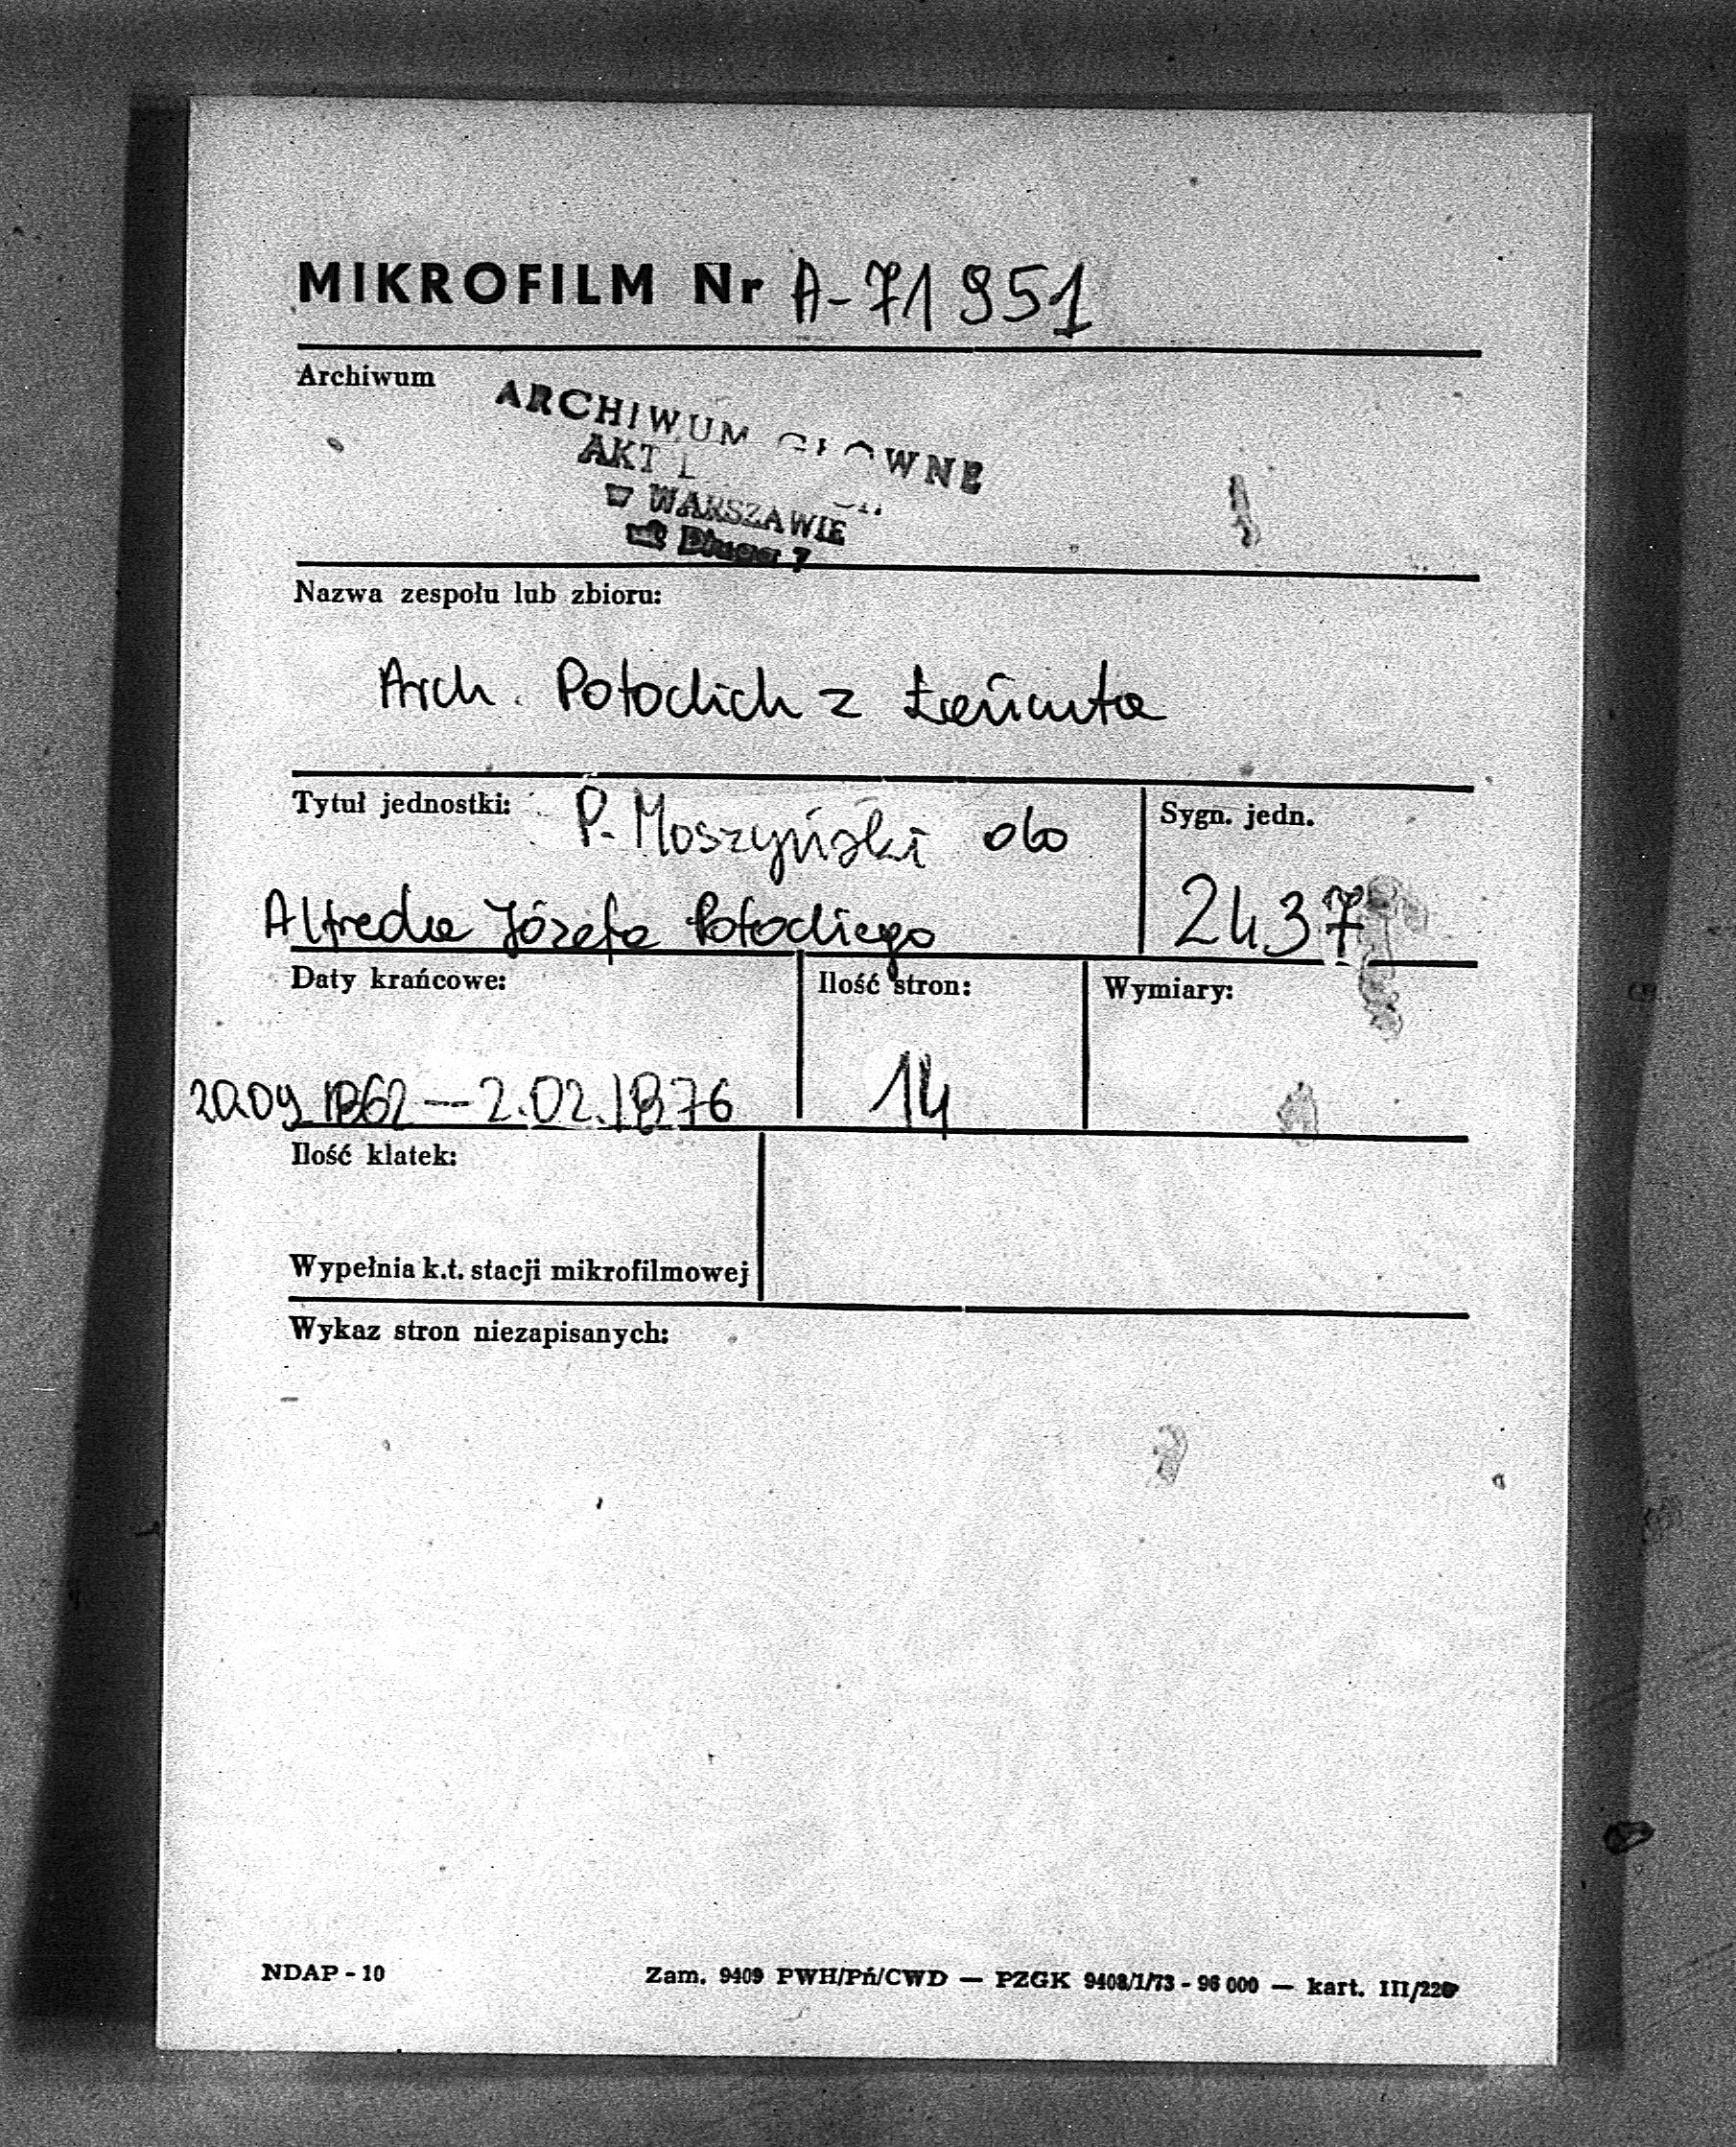 MIKROFILM Nr A-71951
Archiwum
ARCHIWUM GŁÓWNE
AKT
w WARSZAWIE
ul. Długa 7
Nazwa zespołu lub zbioru:
Arch. Potockich z Łańcuta
Tytuł jednostki: P. Moszyński do
Alfreda Józefa Potockiego
Sygn. jedn.
2437
Daty krańcowe:
20.09.1862 — 2.02.1876
Ilość stron:
14
Wymiary:
Ilość klatek:
Wypełnia k.t. stacji mikrofilmowej
Wykaz stron niezapisanych:
NDAP - 10
Zam. 9409 PWH/Pń/CWD — PZGK 9408/1/73 - 96 000 — kart. III/220